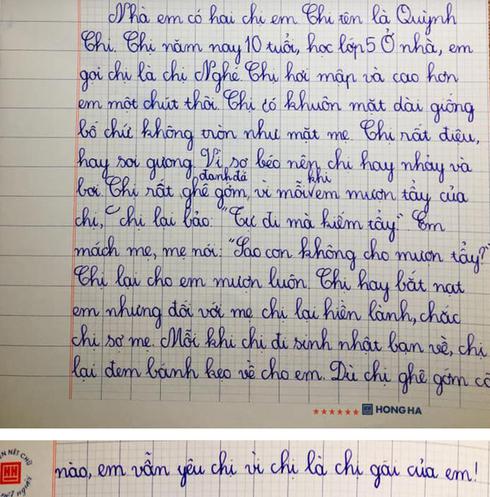 Nhà em có hai chị em. Chị tên là Quỳnh
Chi. Chị năm nay 10 tuổi, học lớp 5. Ở nhà, em
gọi chị là chị Nghé. Chị hơi mập và cao hơn
em một chút thôi. Chị có khuôn mặt dài giống
bố chứ không tròn như mặt mẹ. Chị rất điệu,
hay soi gương. Vì sợ béo nên chị hay nhảy và
bơi. Chị rất đanh đá, ghê gớm, vì mỗi khi em mượn tẩy của
chị, chị lại bảo: "Tự đi mà kiếm tẩy". Em
mách mẹ, mẹ nói: "Sao con không cho mượn tẩy?"
Chị lại cho em mượn luôn. Chị hay bắt nạt
em nhưng đối với mẹ chị lại hiền lành, chắc
chị sợ mẹ. Mỗi khi chị đi sinh nhật bạn về, chị
lại đem bánh kẹo về cho em. Dù chị ghê gớm cỡ
HONG HA
nào, em vẫn yêu chị vì chị là chị gái của em!